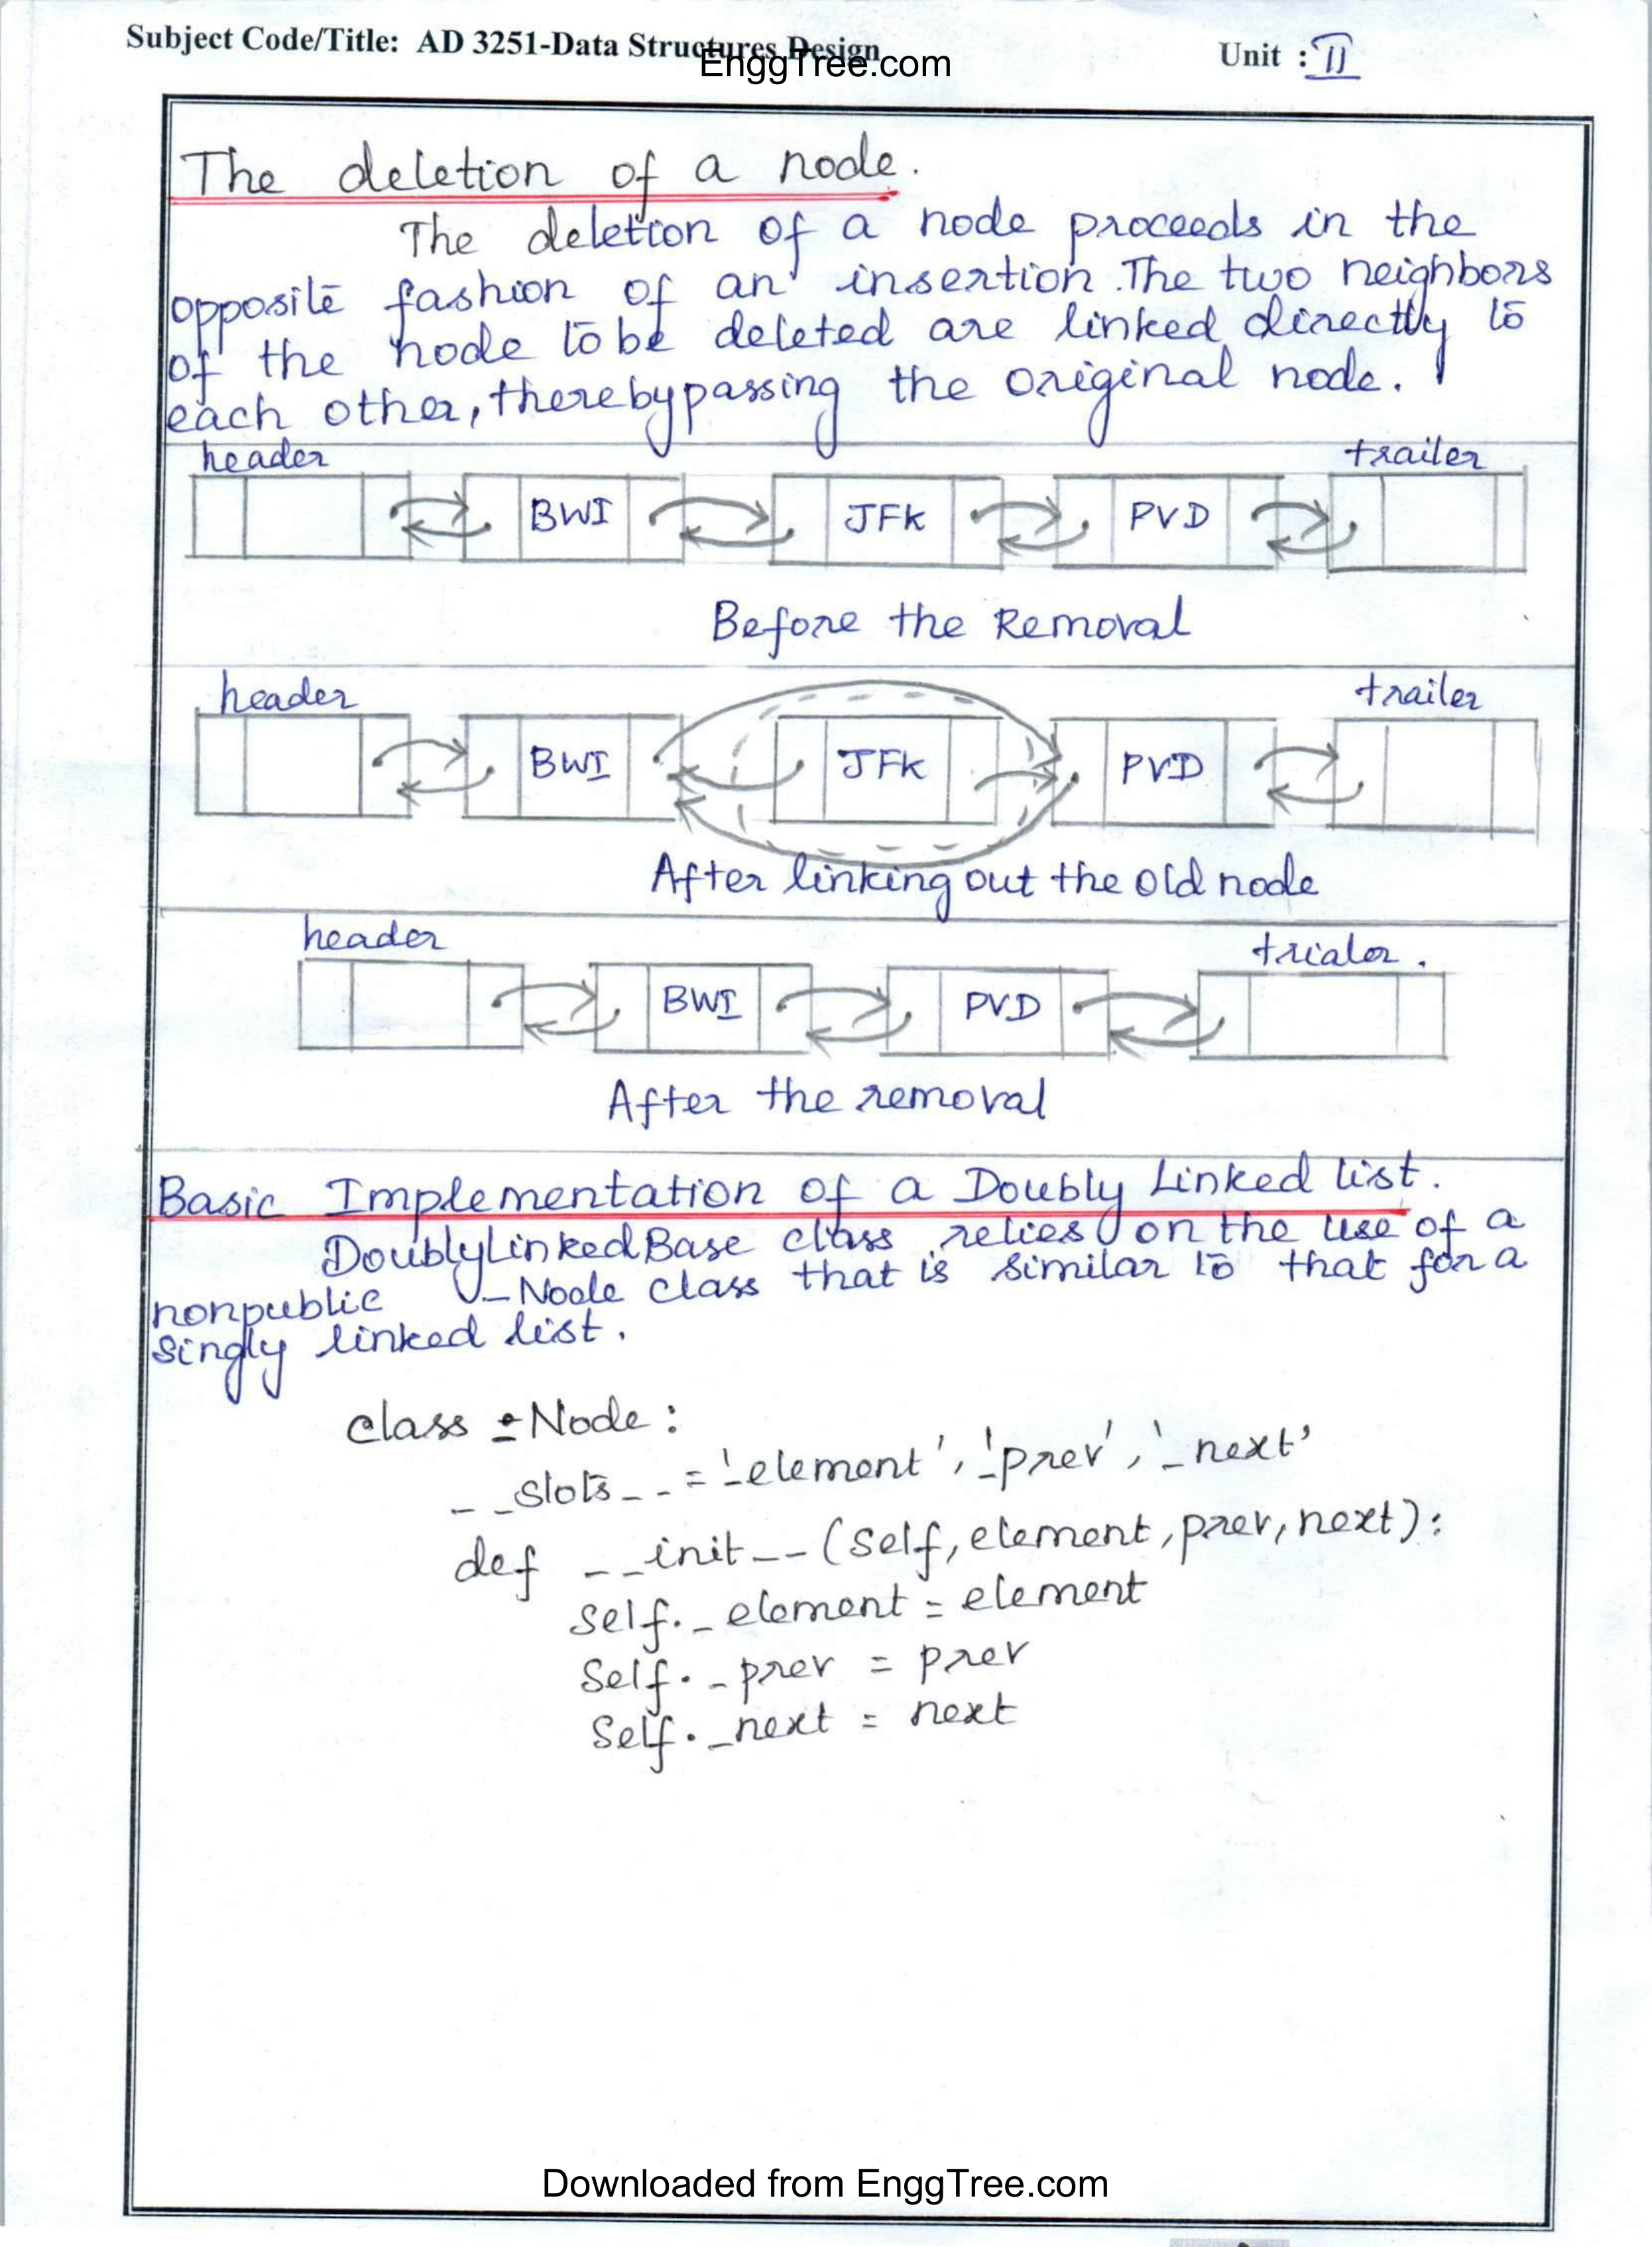 Subject Code/Title: AD 3251-Data Structures Design
EnggTree.com
Unit : II
The deletion of a node.
The deletion of a node proceeds in the
opposite fashion of an insertion. The two neighbors
of the node to be deleted are linked directly to
each other, thereby passing the original node.
header trailer
BWI JFK PVD
Before the Removal
header trailer
BWI JFK PVD
After linking out the old node
header trialer.
BWI PVD
After the removal
Basic Implementation of a Doubly Linked list.
DoublyLinkedBase class relies on the use of a
nonpublic _Node class that is similar to that for a
singly linked list.
class _Node:
__slots__ = '_element', '_prev', '_next'
def __init__(self, element, prev, next):
self._element = element
self._prev = prev
self._next = next
Downloaded from EnggTree.com